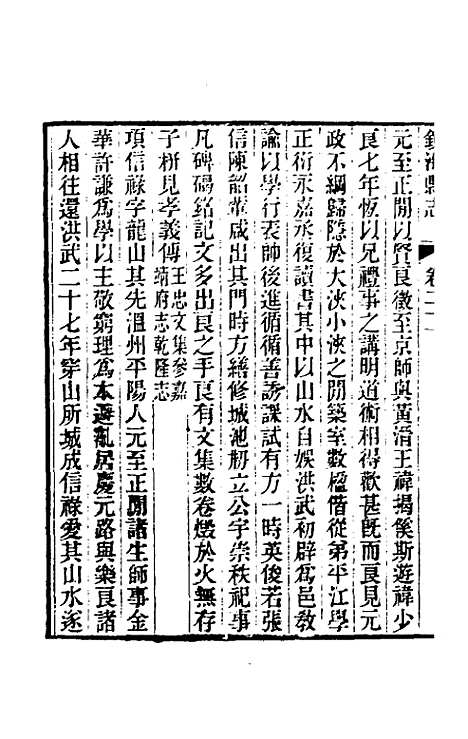 鎮海縣志 卷二十
元至正閒以賢良徵至京師與黃溍王禕揭傒斯遊禕少
良七年恆以兄禮事之講明道術相得歡甚旣而良見元
政不綱歸隱於大浹小浹之閒築室數楹偕從弟平江學
正衍永嘉永復讀書其中以山水自娛洪武初辟爲邑敎
諭以學行表師後進循循善誘課試有方一時英俊若張
信陳韶輩咸出其門時方繕修城池剏立公宇崇秩祀事
凡碑碣銘記文多出良之手良有文集數卷燬於火無存
子枅見孝義傳王忠文集參嘉
靖府志乾隆志
項信祿字龍山其先溫州平陽人元至正閒諸生師事金
華許謙爲學以主敬窮理爲本避亂居慶元路與樂良諸
人相往還洪武二十七年穿山所城成信祿愛其山水遂